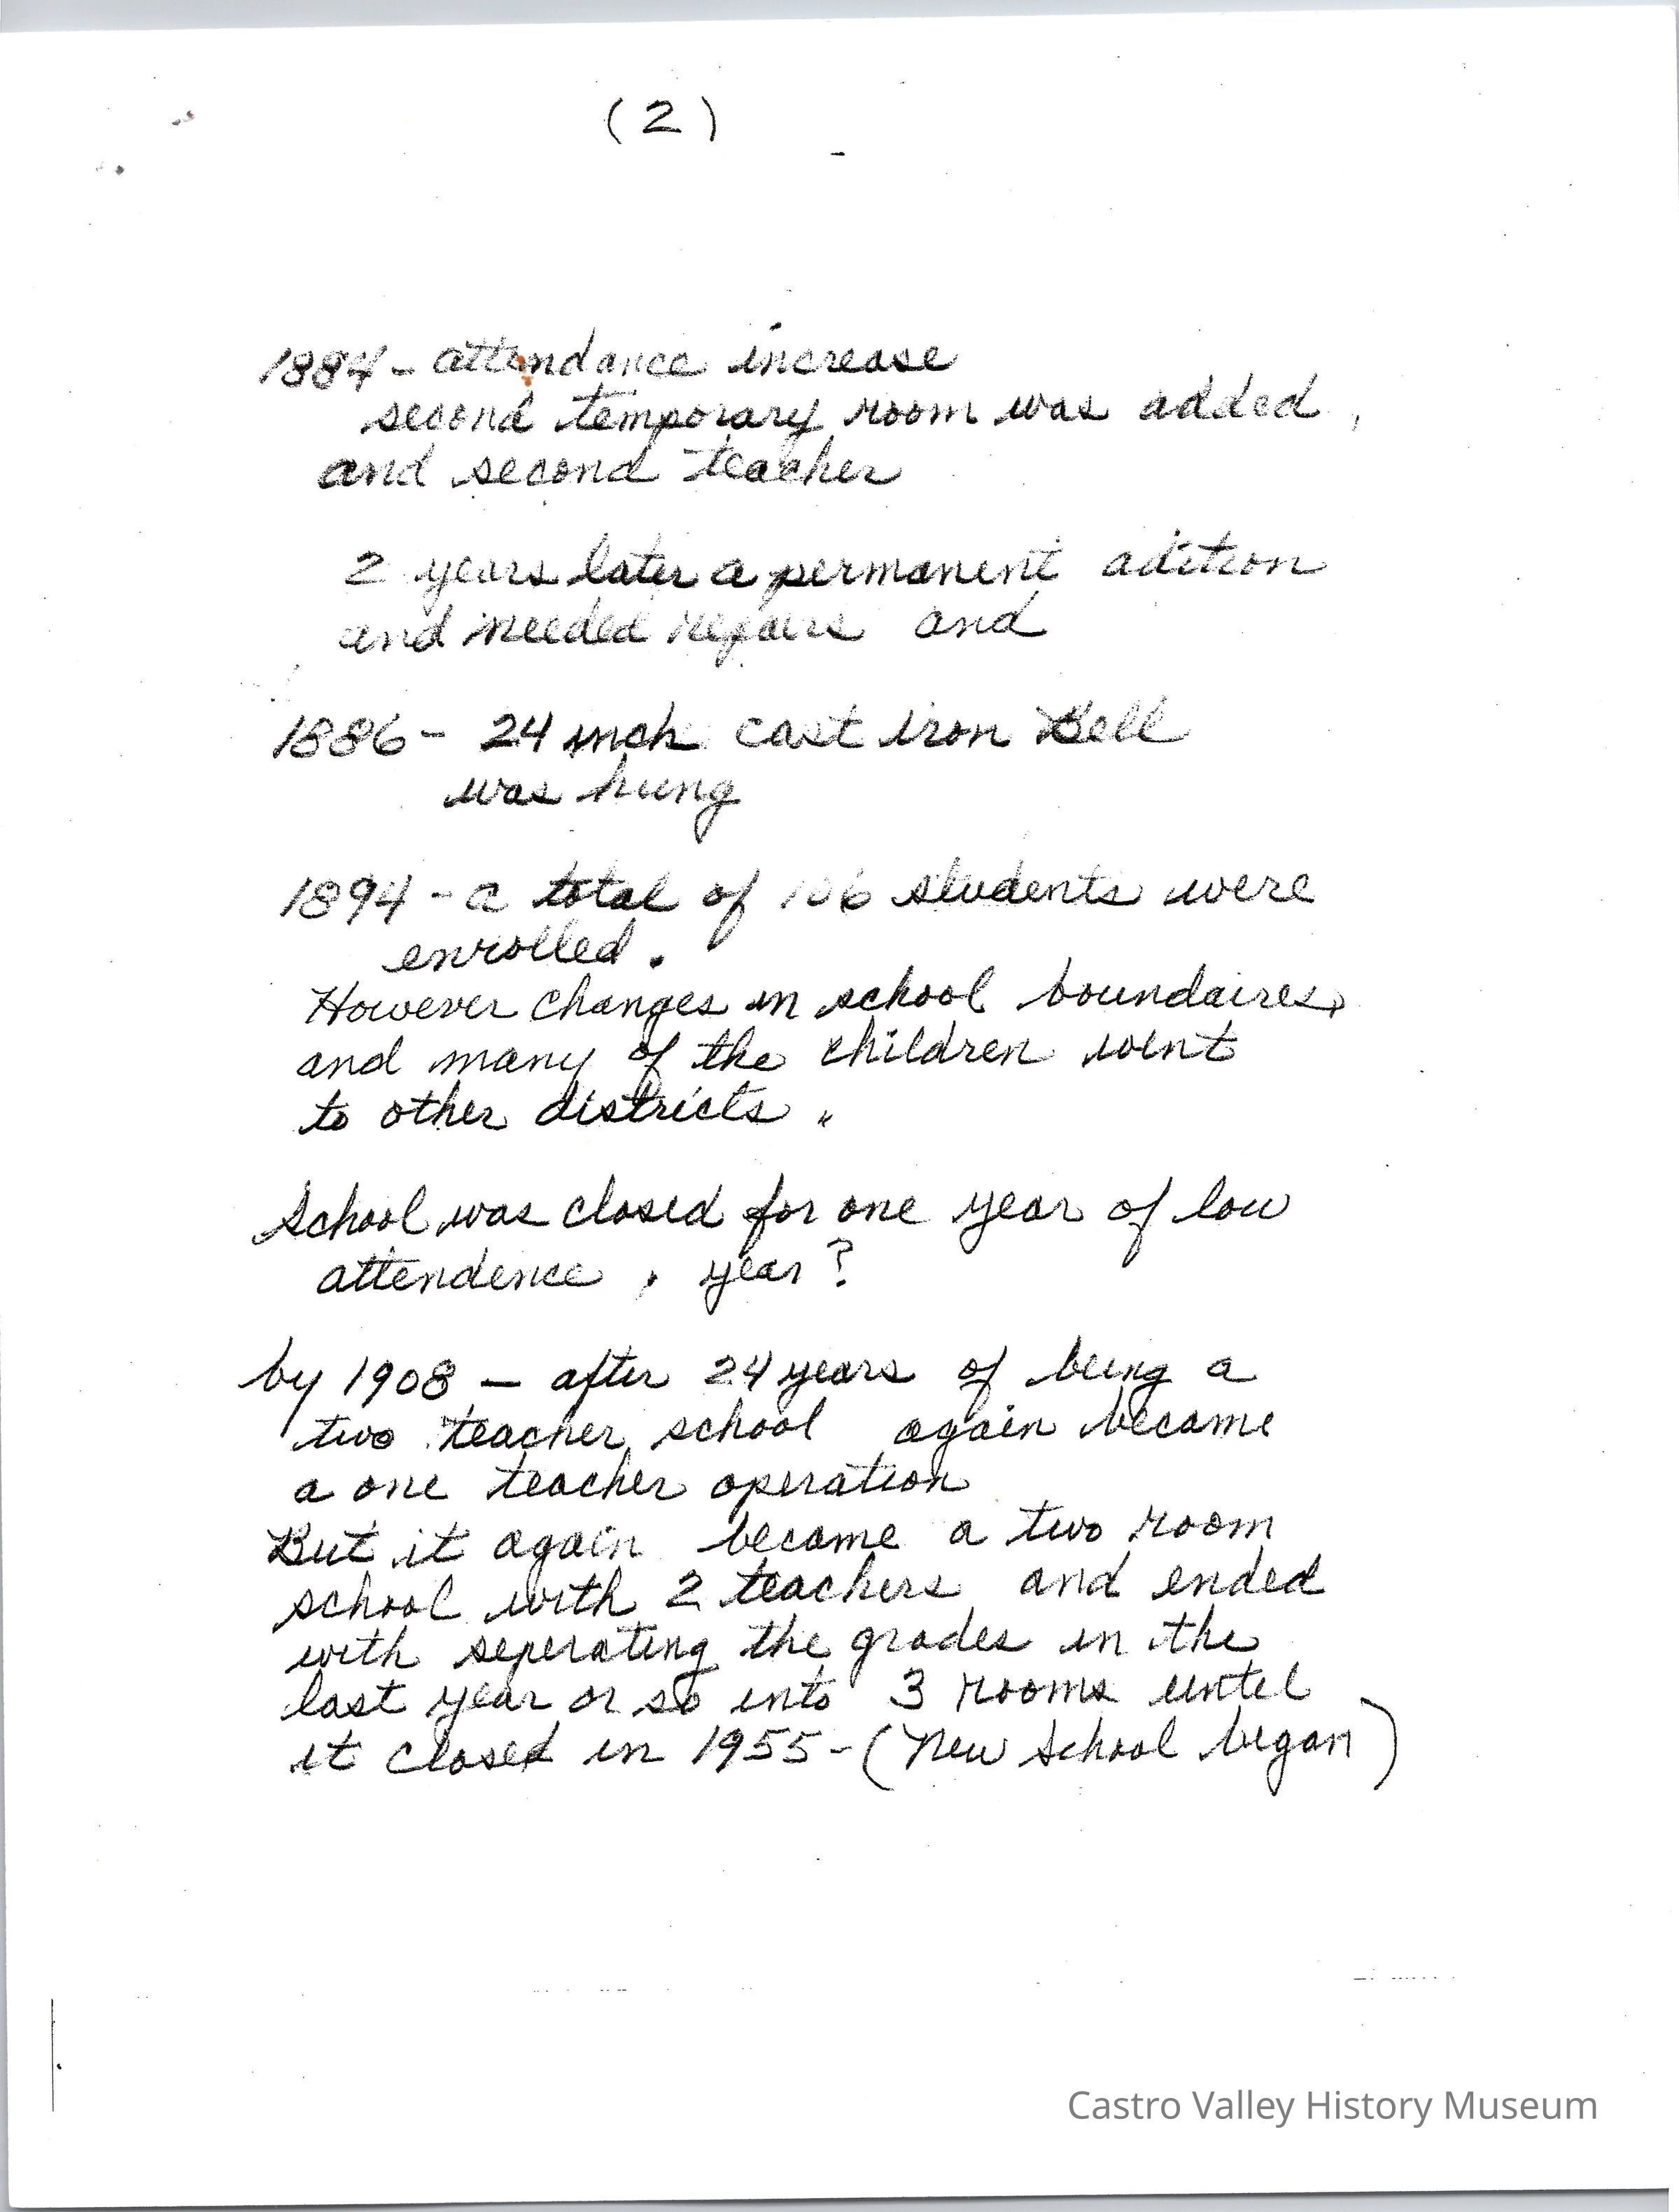 (2)
1884 - attendance increase
second temporary room was added,
and second teacher
2 years later a permanent adition
and needed repairs and
1886 - 24 inch cast iron Bell
was hung
1894 - a total of 106 students were
enrolled.
However changes in school boundaires,
and many of the children went
to other districts.
School was closed for one year of low
attendence, year?
by 1908 — after 24 years of being a
two teacher school again became
a one teacher operation
But it again became a two room
school with 2 teachers and ended
with seperating the grades in the
last year or so into 3 rooms until
it closed in 1955 - (New School began)
Castro Valley History Museum